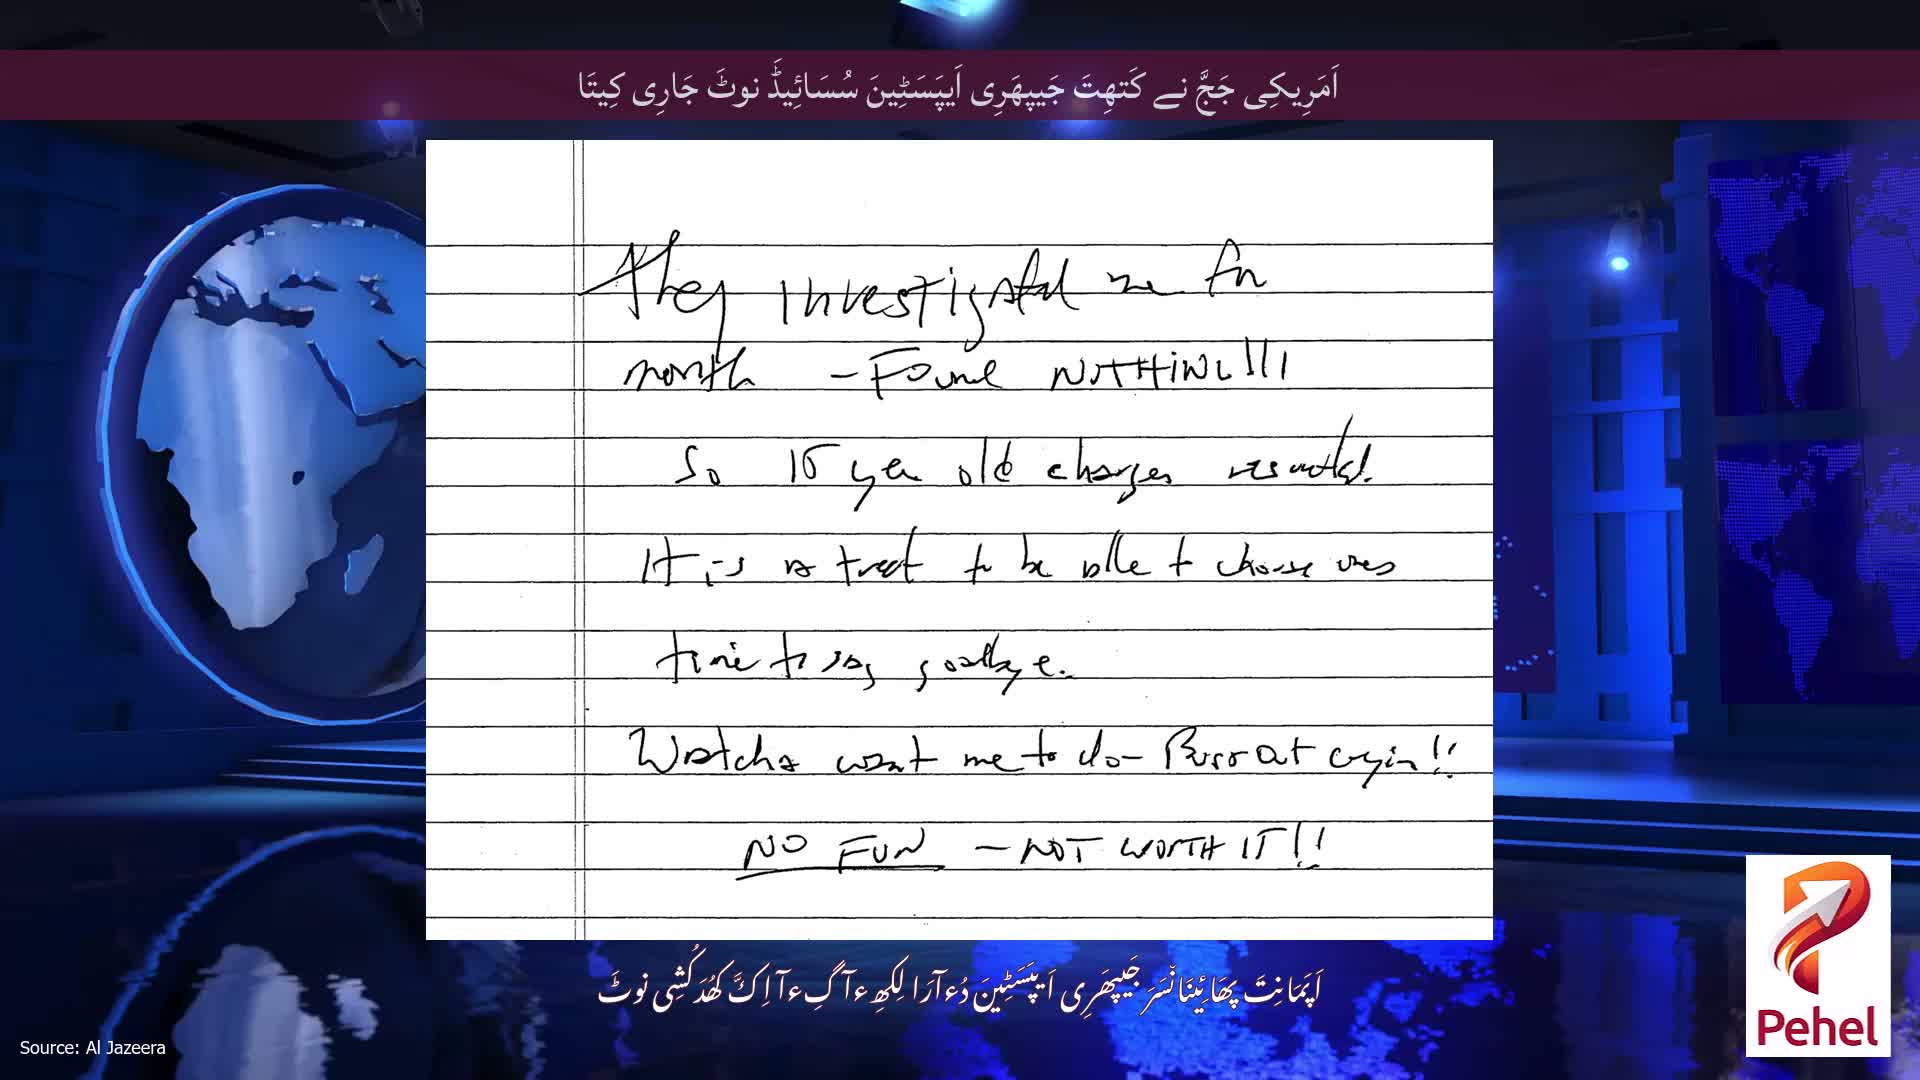 اَمَرِیکِی جَجَّ نے کَتھِتَ جَیپھَرِی اَیپَسَٹِینَ سُسَائِیڈَ نوٹَ جَارِی کِیتَا
They investigated me for
month – Found NOTHING!!!
So 15 year old charges resulted.
It is a treat to be able to choose ones
time to say goodbye.
Watcha want me to do – Burst out cryin!!
NO FUN – NOT WORTH IT!!
اَپَمَانِتَ پھَائِینَانْسَرَ جَیپھَرِی اَیپَسَٹِینَ دُءآرَا لِکھِءآ گِءآ اِکَّ کھُدَکُشِی نوٹَ
Source: Al Jazeera
Pehel